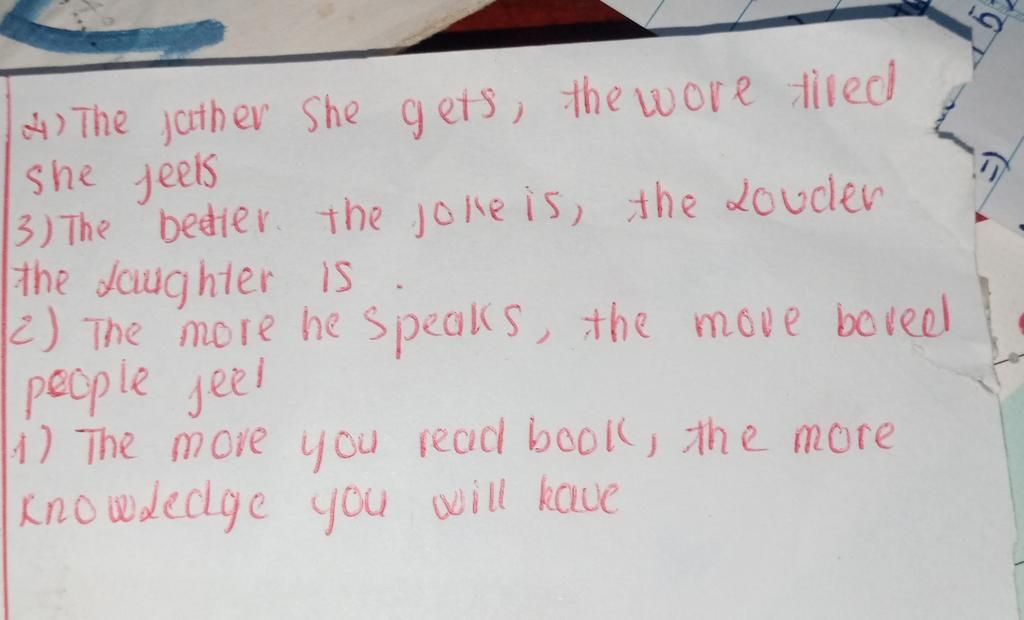 4) The father she gets, the wore tired
she feels
3) The better the joke is, the Louder
the laughter is .
2) The more he speaks, the more bored
people feel
1) The more you read book, the more
knowledge you will have
5)
=)